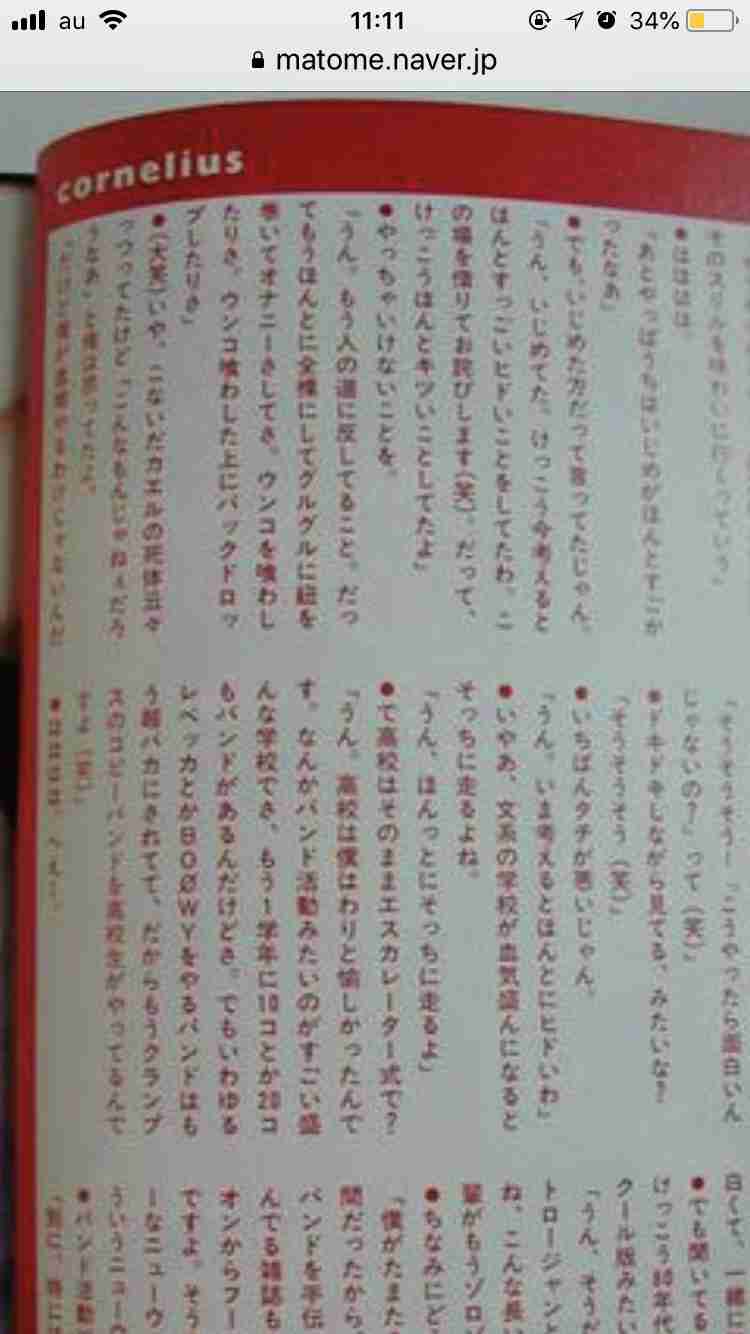 au
11:11
34%
matome.naver.jp
cornelius
そのスリルを味わいに行くっていう」
●はははは。
「あとやっぱうちはいじめがほんとすごか
ったなあ」
●でも、いじめた方だって言ってたじゃん。
「うん。いじめてた。けっこう今考えると
ほんとすっごいヒドいことをしてたわ。こ
の場を借りてお詫びします(笑)。だって、
けっこうほんとキツいことしてたよ」
●やっちゃいけないことを。
「うん。もう人の道に反してること。だっ
てもうほんとに全裸にしてグルグルに紐を
巻いてオナニーさしてさ。ウンコを喰わし
たりさ。ウンコ喰わした上にバックドロッ
プしたりさ」
●(大笑)いや、こないだカエルの死体云々
っつってたけど「こんなもんじゃねえだろ
うなあ」と僕は思ってたよ。
「だけど僕が直接やるわけじゃないんだ
「そうそうそう!『こうやったら面白いん
じゃないの?』って(笑)」
●ドキドキしながら見てる、みたいな?
「そうそうそう(笑)」
●いちばんタチが悪いじゃん。
「うん。いま考えるとほんとにヒドいわ」
●いやあ、文系の学校が血気盛んになると
そっちに走るよね。
「うん、ほんっとにそっちに走るよ」
●で高校はそのままエスカレーター式で?
「うん。高校は僕はわりと愉しかったんで
す。なんかバンド活動みたいのがすごい盛
んな学校でさ、もう1学年に10コとか20コ
もバンドがあるんだけどさ。でもいわゆる
レベッカとかBOØWYをやるバンドはも
う超バカにされてて、だからもうクランプ
スのコピーバンドを高校生がやってるんで
すよ(笑)」
●はははは、へえー。
白くて、一緒に
●でも聞いてる
けっこう80年代
クール版みたい
「うん、そうだ
トロージャンと
ね、こんな長い
輩がもうゾロゾ
●ちなみにど
「僕がたまた
間だったから、
バンドを手伝
んでる雑誌も
オンからフー
ですよ。そう
ーなニューウ
ういうニューウ
●バンド活動